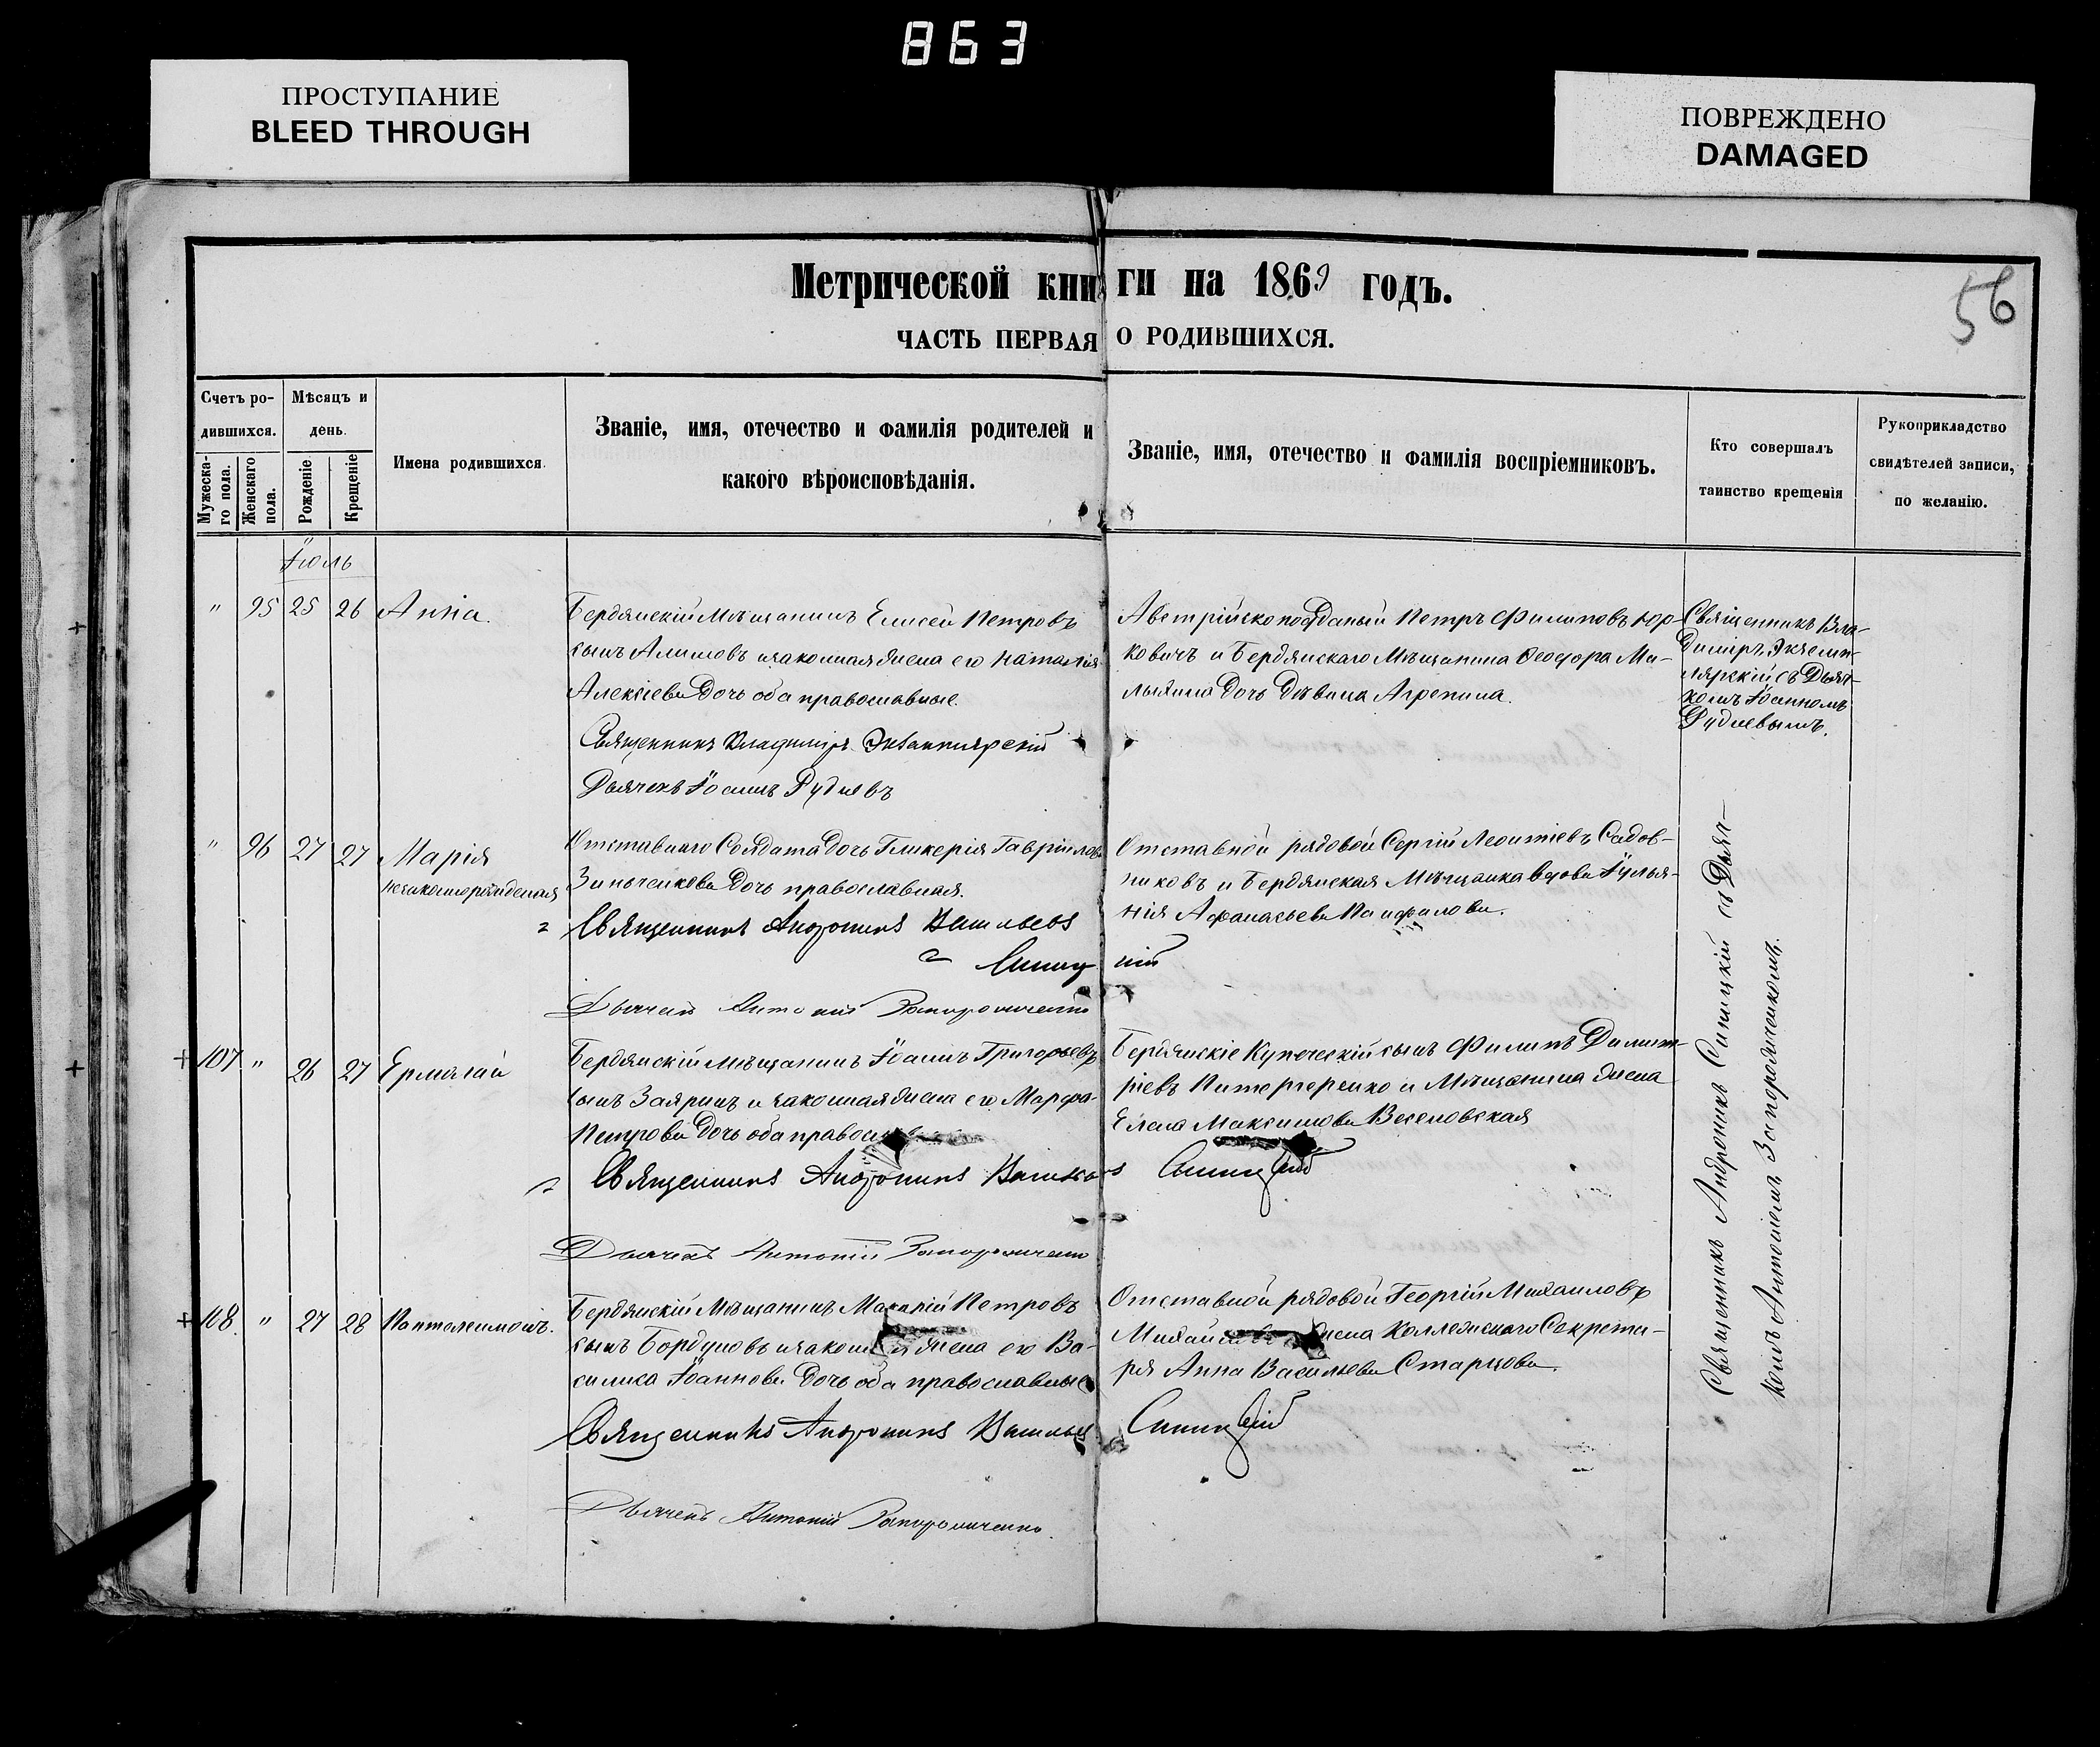 863
ПРОСТУПАНИЕ
BLEED THROUGH
ПОВРЕЖДЕНО
DAMAGED
56
Метрической книги на 1869 годъ.
ЧАСТЬ ПЕРВАЯ О РОДИВШИХСЯ.
Счетъ ро-
дившихся.
Мужеска-
го пола.
Женскаго
пола.
Мѣсяцъ и
день.
Рожденіе
Крещеніе
Имена родившихся.
Званіе, имя, отечество и фамилія родителей и
какого вѣроисповѣданія.
Званіе, имя, отечество и фамилія воспріемниковъ.
Кто совершалъ
таинство крещенія
Рукоприкладство
свидѣтелей записи,
по желанію.
Іюль
" 95 25 26 Анна.
Бердянскій Мѣщанинъ Елисей Петровъ
сынъ Алимовъ и законная жена его Наталія
Алексіева дочь оба православные.
Священникъ Владимiръ
Дьячекъ Іоаннъ Рудневъ
Австрійско подданый Петръ Филиповъ Юр-
ковичъ и Бердянскаго Мѣщанина Ѳеодора Ма-
лыхина дочь Дѣвица Агрепина.
Священникъ Вла-
димiръ
съ Дьяч-
комъ Іоанномъ
Рудневымъ.
" 96 27 27 Марія
незаконорожденая
Отставнаго Солдата дочь Гликерія Гавріилова
Зинченкова дочь православная.
Священникъ Андроникъ Васильевъ
Синицкій
Дьячекъ Антоній Запорожченко
Отставной рядовой Сергій Леонтіевъ Садов-
никовъ и Бердянская Мѣщанка вдова Іулья-
нія Афанасьева Панфилова.
+ 107 " 26 27 Ермолай
Бердянскій мѣщанинъ Іоаннъ Григорьевъ
сынъ Заяринъ и законная жена его Марфа
Петрова дочь оба
Священникъ Андроникъ Васильевъ Синицкій
Дьячекъ Антоній Запорожченко
Бердянскіе Купеческій сынъ Филипъ Димит-
ріевъ и Мѣщанина жена
Елена Максимова Веселовская
+ 108. " 27 28 Пантелеимонъ.
Бердянскій Мѣщанинъ Макарій Петровъ
сынъ Бордуновъ и жена его Ва-
силиса Іоаннова дочь оба православные
Священникъ Андроникъ Васильев Синицкій
Дьячекъ Антоній Запорожченко.
Отставной рядовой Георгій Михаиловъ
жена Коллежскаго Секрета-
ря Анна Васильева Старцова.
Священникъ Андроникъ Синицкій съ Дьяч-
комъ Антоніемъ Запорожченкомъ.